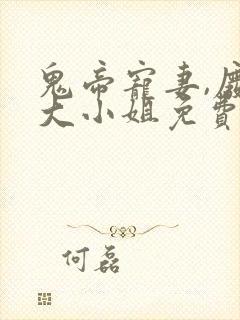 鬼帝寵妻,
大小姐免費
何磊